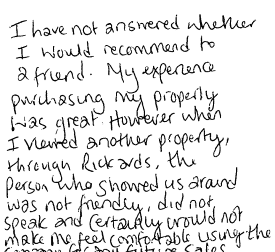 I have not answered whether
I would recommend to
a friend. My experience
purchasing my property
was great. However when
I viewed another property,
through Rickards, the
person who showed us around
was not friendly, did not
speak and certainly would not
make me feel comfortable using the
company for any future sales